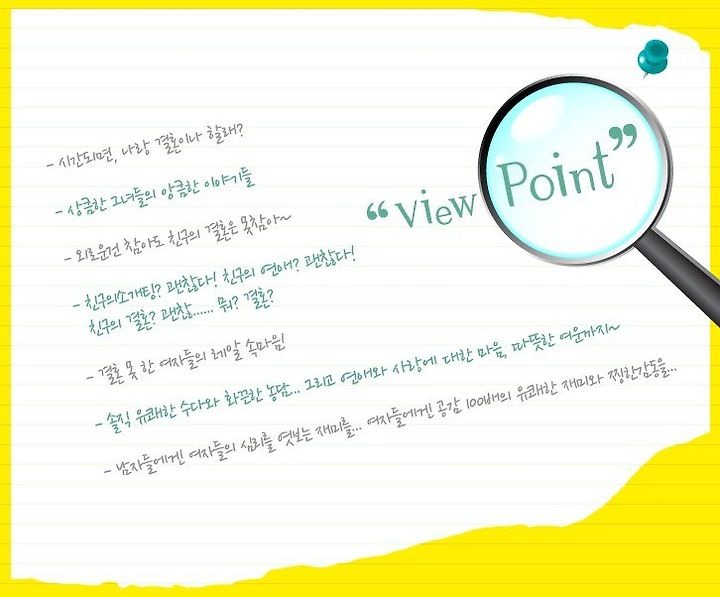 - 시간되면, 나랑 결혼이나 할래?
- 상큼한 그녀들의 앙큼한 이야기들
- 외로운건 참아도 친구의 결혼은 못참아~
“View Point”
- 친구의소개팅? 괜찮다! 친구의 연애? 괜찮다!
친구의 결혼? 괜찮...... 뭐? 결혼?
- 결혼 못 한 여자들의 레알 속마음!
- 솔직 유쾌한 수다와 화끈한 농담... 그리고 연애와 사랑에 대한 마음, 따뜻한 여운까지~
- 남자들에겐 여자들의 심리를 엿보는 재미를... 여자들에겐 공감 100배의 유쾌한 재미와 찡한감동을...